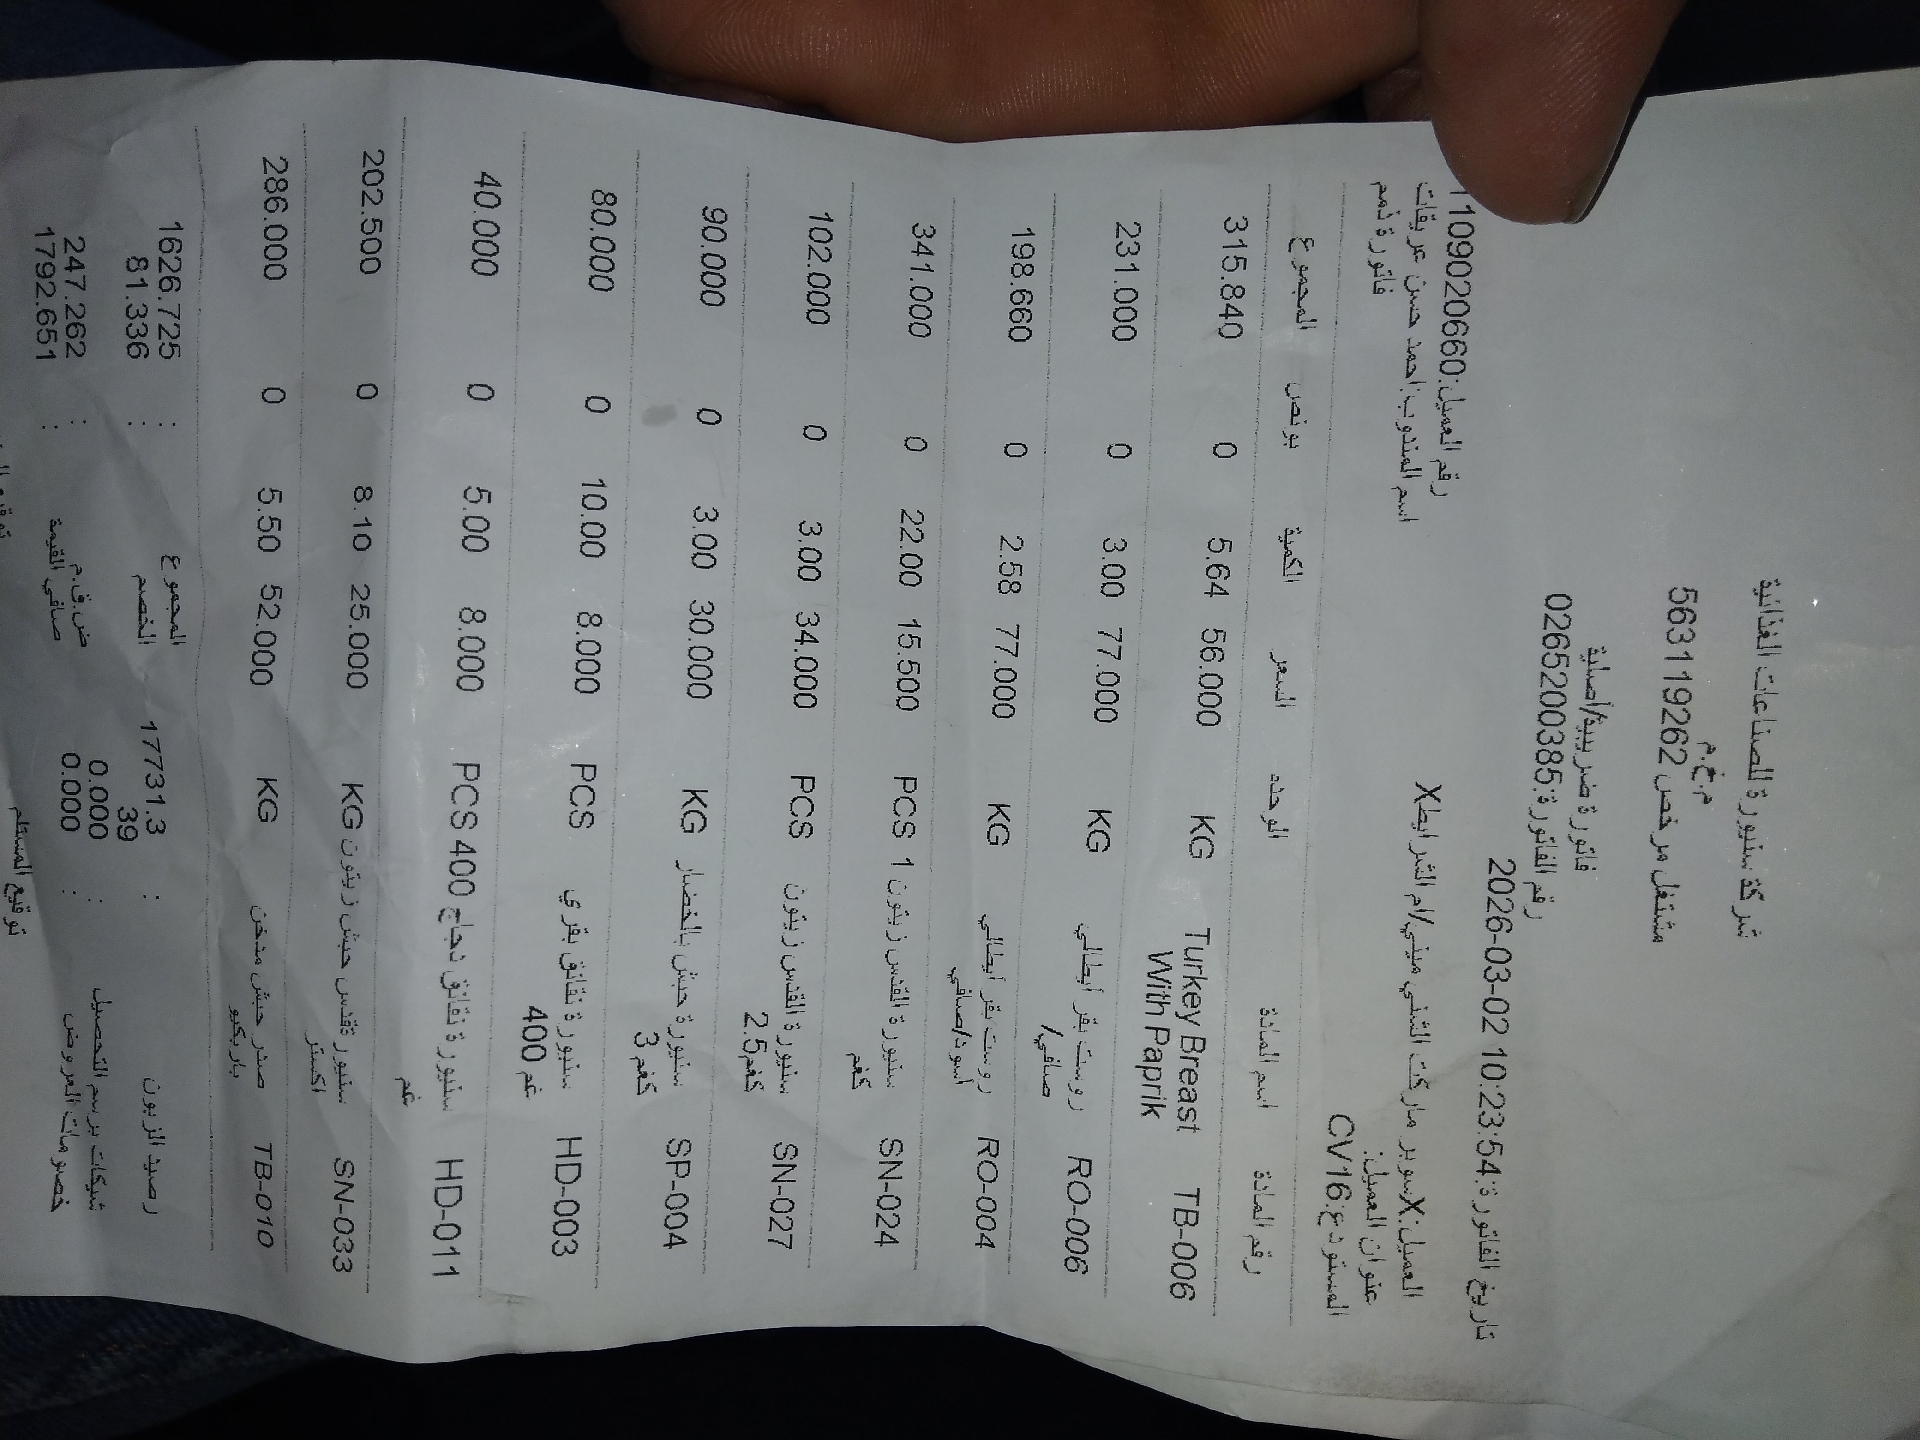 شركة سنيورة للصناعات الغذائية
م.خ.م
مشتغل مرخص 563119262
فاتورة ضريبية/أصلية
رقم الفاتورة:0265200385
تاريخ الفاتورة:2026-03-02 10:23:54
رقم العميل:1109020660
العميل:Xسوبر ماركت الشني ميني/ام الشرايطX
اسم المندوب:احمد حسن عريقات
عنوان العميل:
فاتورة ذمم
المستودع:CV16
رقم المادة اسم المادة الوحده السعر الكمية بونص المجموع
TB-006 Turkey Breast With Paprik KG 56.000 5.64 0 315.840
RO-006 روست بقر ايطالي صافي/ KG 77.000 3.00 0 231.000
RO-004 روست بقر ايطالي اسود/صافي KG 77.000 2.58 0 198.660
SN-024 سنيورة القدس زيتون 1 كغم PCS 15.500 22.00 0 341.000
SN-027 سنيورة القدس زيتون 2.5كغم PCS 34.000 3.00 0 102.000
SP-004 سنيورة حبش بالخضار 3 كغم KG 30.000 3.00 0 90.000
HD-003 سنيورة نقانق بقري 400 غم PCS 8.000 10.00 0 80.000
HD-011 سنيورة نقانق دجاج 400 غم PCS 8.000 5.00 0 40.000
SN-033 سنيورةقدس حبش زيتون اكستر KG 25.000 8.10 0 202.500
TB-010 صدر حبش مدخن باربكيو KG 52.000 5.50 0 286.000
المجموع : 1626.725
رصيد الزبون : 17731.339
الخصم : 81.336
شيكات برسم التحصيل : 0.000
ض.ق.م : 247.262
خصومات العروض : 0.000
صافي القيمة : 1792.651
توقيع المستلم